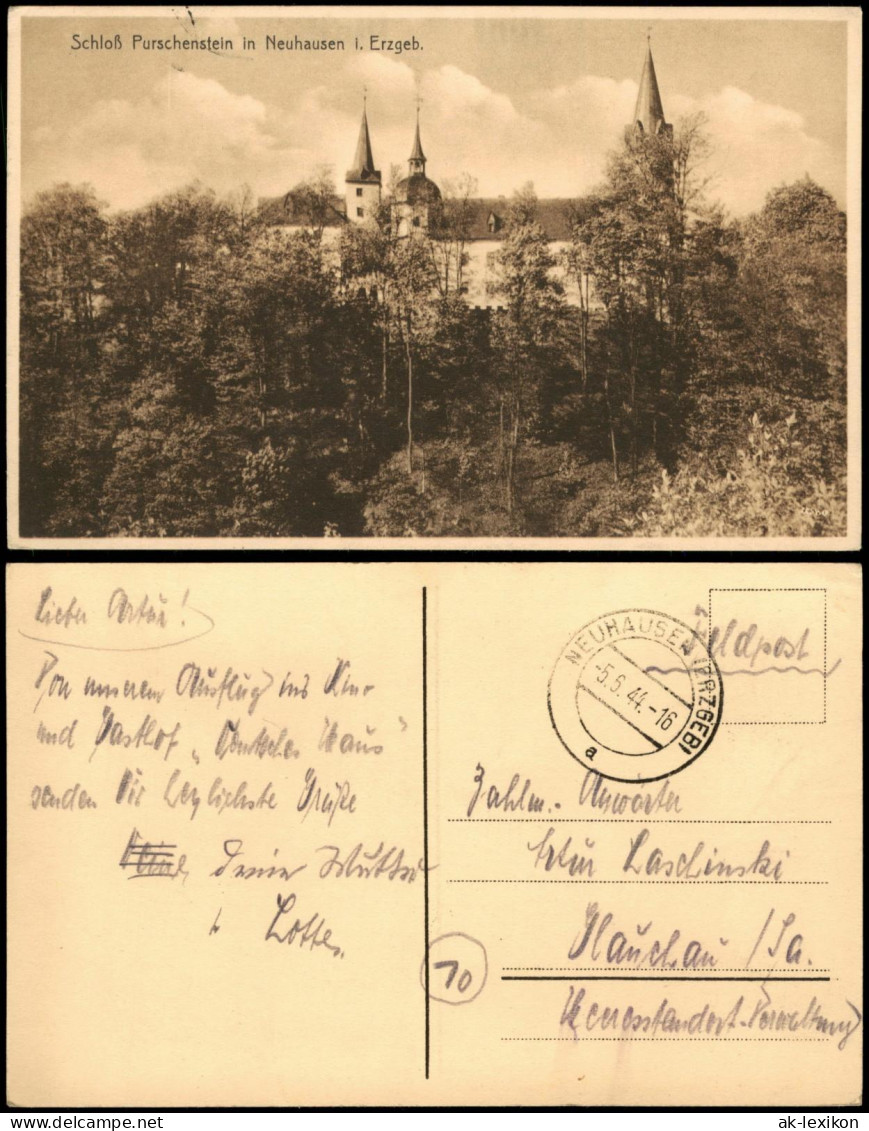 Schloß Purschenstein in Neuhausen i. Erzgeb.
Lieber Artur!
Von unserem Ausflug ins Kino
und Gasthof „Deutsches Haus"
senden Dir herzlichste Grüße
Deine Mutter
Lotte.
Feldpost
NEUHAUSEN (ERZGEB)
-5.6.44.-16
a
Zahlm.-Anwärter
Artur Laschinski
Glauchau/Sa.
Heeresstandort-Verwaltung
10
ak-lexikon